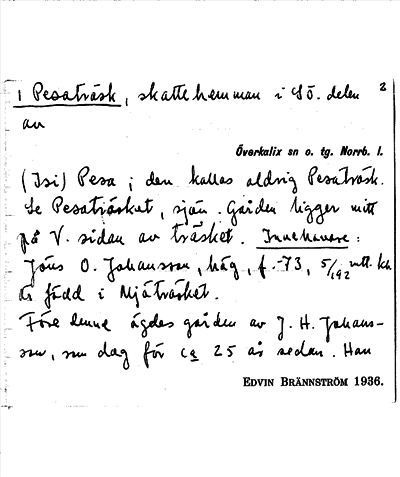 1 Pesaträsk, skattehemman i Sö. delen 2
av
Överkalix sn o. tg. Norrb. l.
(Isi) Pesa; den kallas aldrig Pesaträsk.
Se Pesaträsket, sjön. Gården ligger mitt
på V. sidan av träsket. Innehavare:
Jöns O. Johansson, håg, f. -73, 5/192 mtl. Kh
är född i Mjöträsket.
Före denne ägdes gården av J. H. Johans-
son, som dog för ca 25 år sedan. Han
EDVIN BRÄNNSTRÖM 1936.